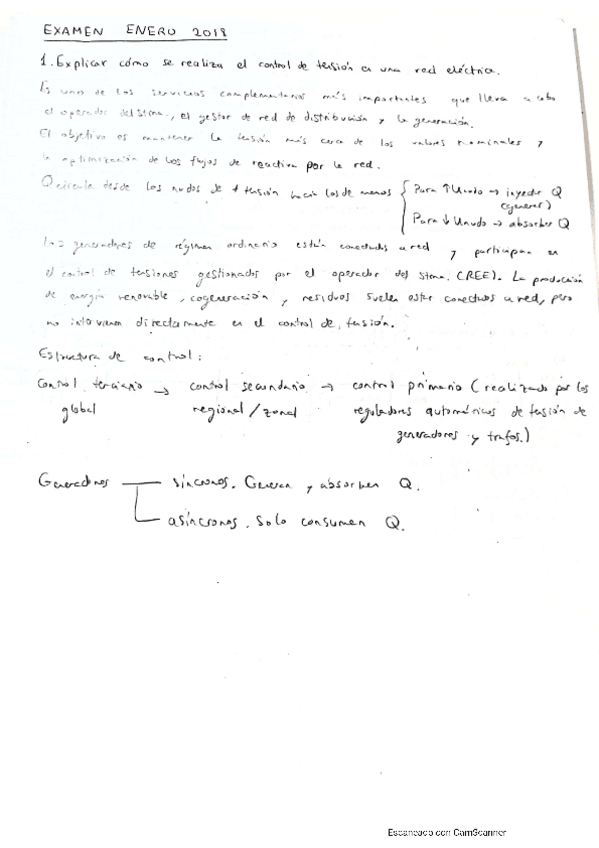 EXAMEN ENERO 2018
1. Explicar cómo se realiza el control de tensión en una red eléctrica.
Es uno de los servicios complementarios más importantes que lleva a cabo
el operador del stma., el gestor de red de distribución y la generación.
El objetivo es mantener la tensión más cerca de los valores nominales y
la optimización de los flujos de reactiva por la red.
Q circula desde los nudos de + tensión hacia los de menos { Para ↑ Unudo → inyectar Q
(generar)
Para ↓ Unudo → absorber Q
Los generadores de régimen ordinario están conectados a red y participan en
el control de tensiones gestionados por el operador del stma. (REE). La producción
de energía renovable, cogeneración y residuos suelen estar conectados a red, pero
no intervienen directamente en el control de tensión.
Estructura de control:
Control terciario → control secundario → control primario (realizado por los
global regional / zonal reguladores automáticos de tensión de
generadores y trafos.)
Generadores síncronos. Generan y absorben Q.
asíncronos. Solo consumen Q.
Escaneado con CamScanner